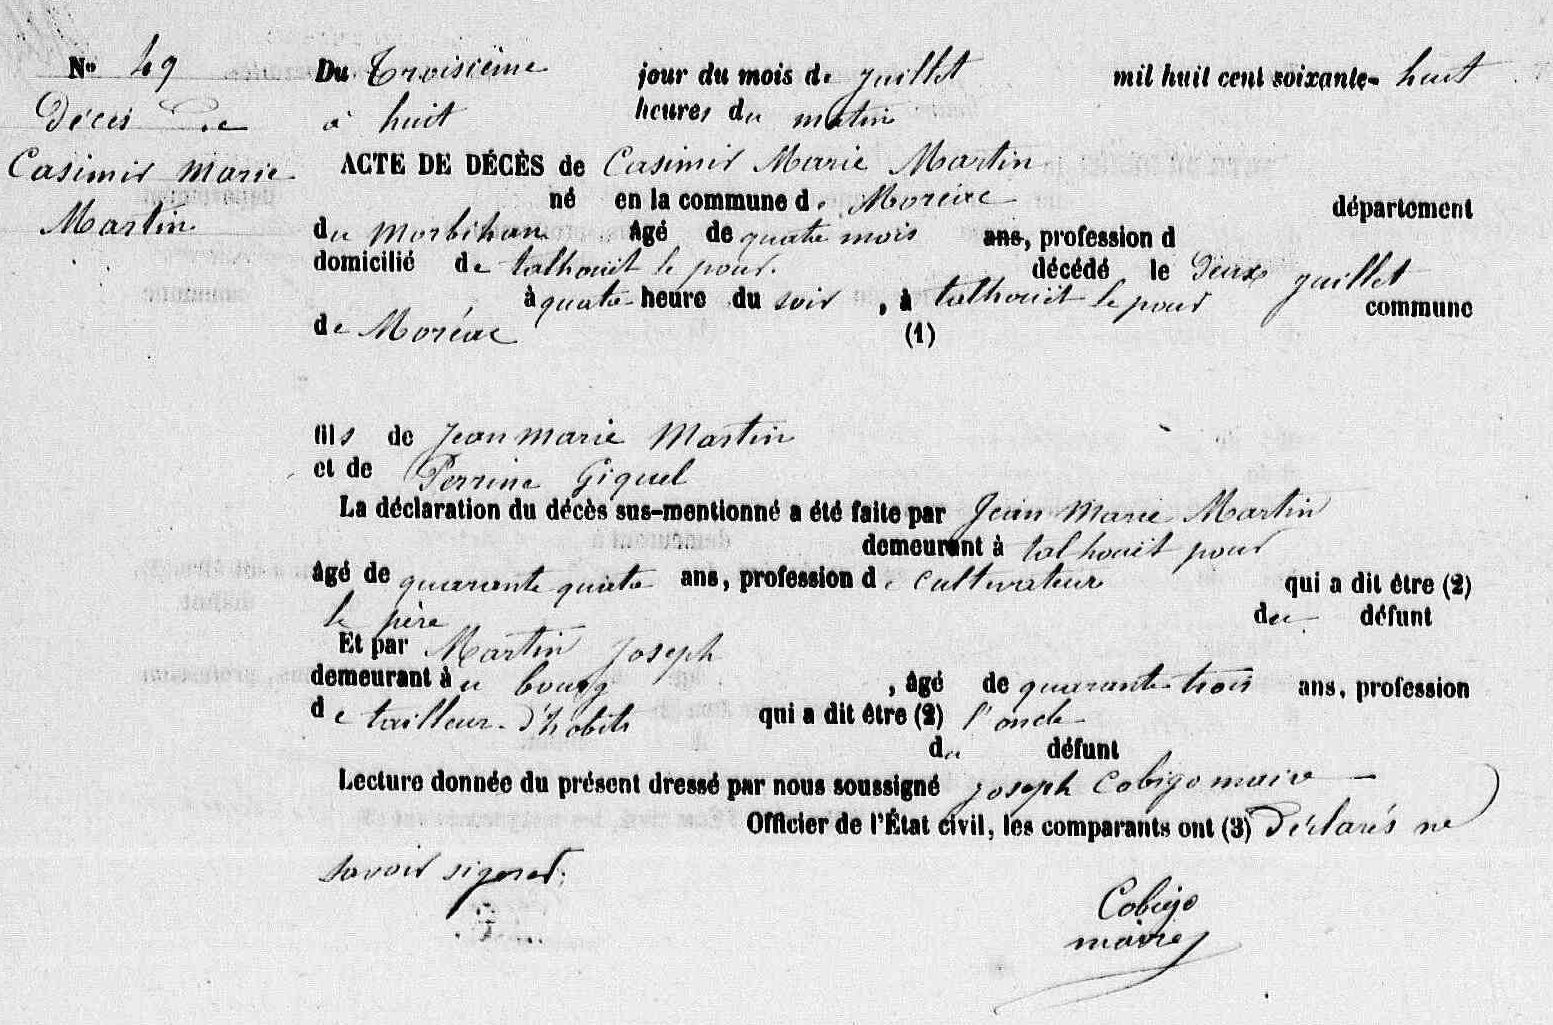 No 49
Décès de
Casimir Marie
Martin
Du Troisième jour du mois de juillet mil huit cent soixante-huit
à huit heures du matin
ACTE DE DÉCÈS de Casimir Marie Martin
né en la commune de Moréac département
du morbihan âgé de quatre mois ans, profession d
domicilié de talhouit le pour. décédé le Deux juillet
à quatre heure du soir, à talhouit le pour commune
de Moréac (1)
fils de Jean marie Martin
et de Perrine Giquel
La déclaration du décès sus-mentionné a été faite par Jean Marie Martin
demeurant à talhouit pour
âgé de quarante quatre ans, profession de cultivateur qui a dit être (2)
le père du défunt
Et par Martin Joseph
demeurant au bourg, âgé de quarante trois ans, profession
de tailleur d'habits qui a dit être (2) l'oncle
du défunt
Lecture donnée du présent dressé par nous soussigné Joseph Cobigo maire
Officier de l'État civil, les comparants ont (3) Déclarés ne
savoir signer.
Cobigo
maire